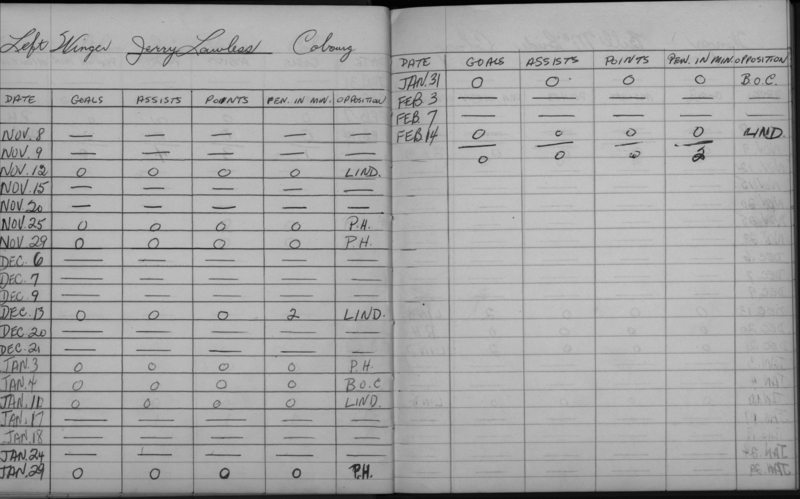 Left Winger Jerry Lawless Cobourg
DATE GOALS ASSISTS POINTS PEN. IN MIN. OPPOSITION
NOV. 8 — — — — —
NOV. 9 — — — — —
NOV. 12 0 0 0 0 LIND.
NOV. 15 — — — — —
NOV. 20 — — — — —
NOV. 25 0 0 0 0 P.H.
NOV. 29 0 0 0 0 P.H.
DEC. 6 — — — — —
DEC. 7 — — — — —
DEC. 9 — — — — —
DEC. 13 0 0 0 2 LIND.
DEC. 20 — — — — —
DEC. 21 — — — — —
JAN. 3 0 0 0 0 P.H.
JAN. 4 0 0 0 0 B.O.C
JAN. 10 0 0 0 0 LIND.
JAN. 17 — — — — —
JAN. 18 — — — — —
JAN. 24 — — — — —
JAN. 29 0 0 0 0 P.H.
DATE GOALS ASSISTS POINTS PEN. IN MIN. OPPOSITION
JAN. 31 0 0 0 0 B.O.C.
FEB 3 — — — — —
FEB 7 — — — — —
FEB 14 0 0 0 0 LIND.
0 0 0 2